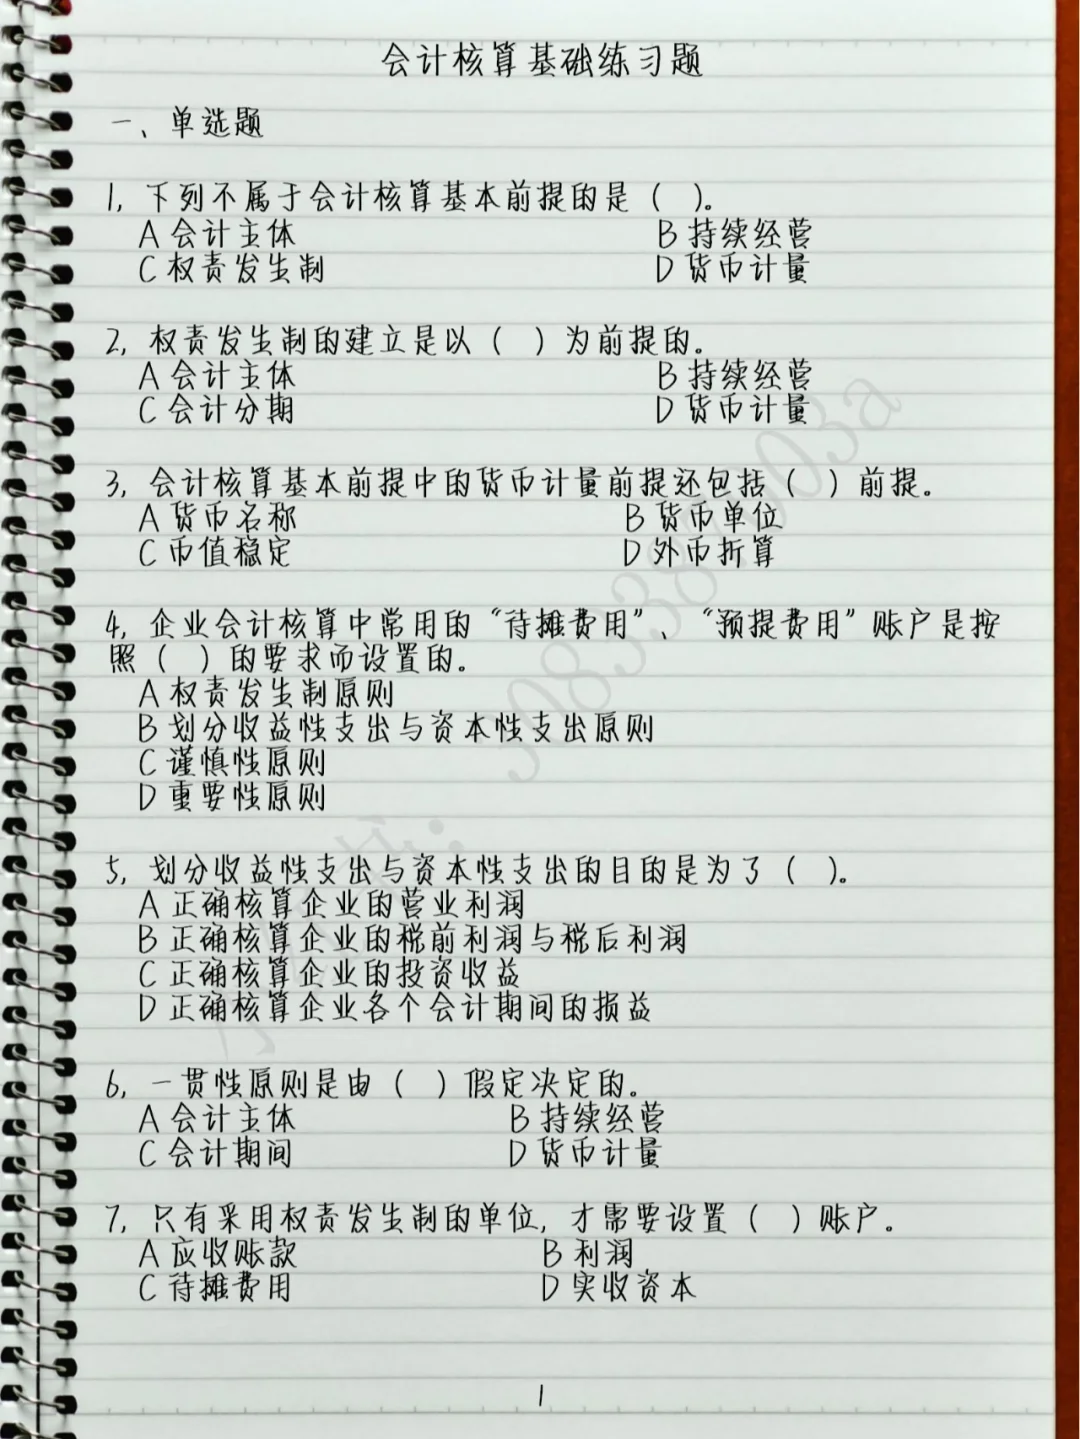 会计核算基础练习题
一、单选题
1, 下列不属于会计核算基本前提的是（ ）。
A 会计主体 B 持续经营
C 权责发生制 D 货币计量
2, 权责发生制的建立是以（ ）为前提的。
A 会计主体 B 持续经营
C 会计分期 D 货币计量
3, 会计核算基本前提中的货币计量前提还包括（ ）前提。
A 货币名称 B 货币单位
C 币值稳定 D 外币折算
4, 企业会计核算中常用的“待摊费用”、“预提费用”账户是按
照（ ）的要求而设置的。
A 权责发生制原则
B 划分收益性支出与资本性支出原则
C 谨慎性原则
D 重要性原则
5, 划分收益性支出与资本性支出的目的是为了（ ）。
A 正确核算企业的营业利润
B 正确核算企业的税前利润与税后利润
C 正确核算企业的投资收益
D 正确核算企业各个会计期间的损益
6, 一贯性原则是由（ ）假定决定的。
A 会计主体 B 持续经营
C 会计期间 D 货币计量
7, 只有采用权责发生制的单位, 才需要设置（ ）账户。
A 应收账款 B 利润
C 待摊费用 D 实收资本
1